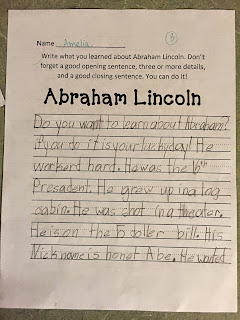 Name Amelia 3
Write what you learned about Abraham Lincoln. Don't
forget a good opening sentence, three or more details,
and a good closing sentence. You can do it!
Abraham Lincoln
Do you want to learn about Abraham?
if you do it is your lucky day! He
workerd hard. He was the 16th
Presadent. He grew up in a log
cabin. He was shot in a theater.
He is on the 5 doller bill. His
Nick name is honet Abe. He wanted